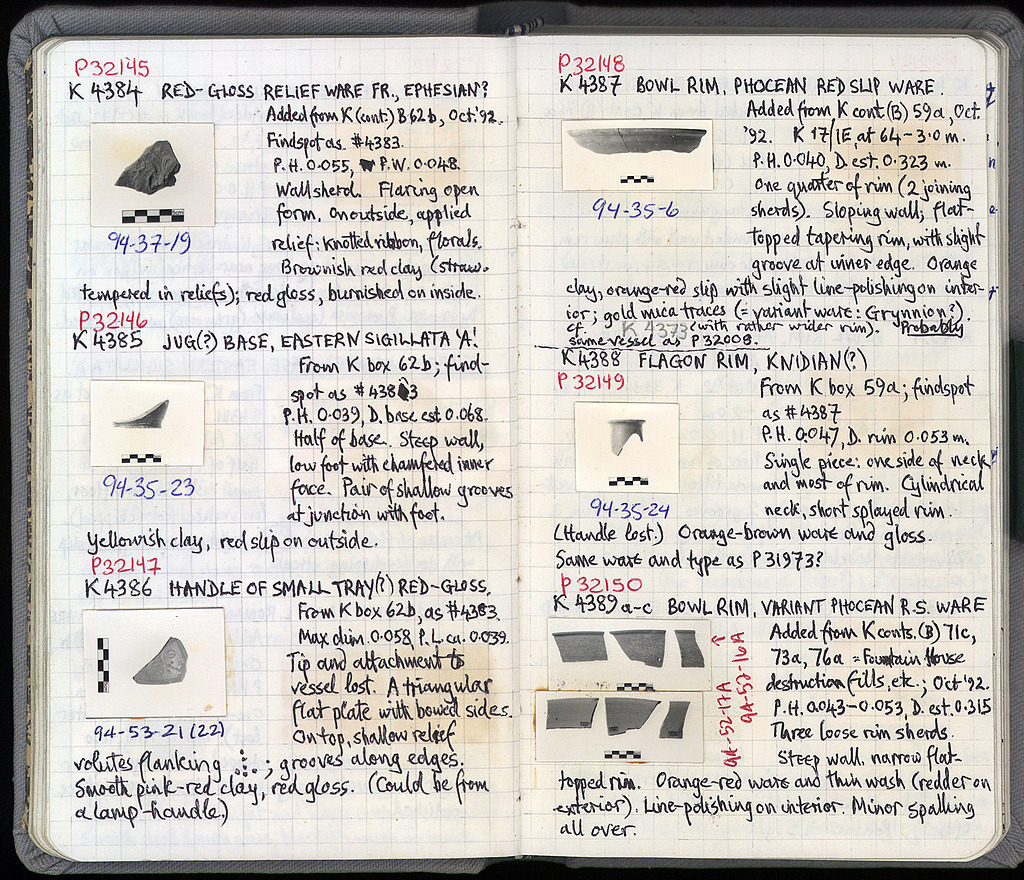 P32145
K 4384 RED-GLOSS RELIEF WARE FR., EPHESIAN?
Added from K (cont.) B 62b, Oct '92.
Findspot as #4383.
P.H. 0.055, P.W. 0.048.
Wall sherd. Flaring open
form. On outside, applied
relief: knotted ribbon, florals.
Brownish red clay (straw-
tempered in reliefs); red gloss, burnished on inside.
94-37-19
P32146
K 4385 JUG(?) BASE, EASTERN SIGILLATA 'A'.
From K box 62b; find-
spot as #4383
P.H. 0.039, D. base est 0.068.
Half of base. Steep wall,
low foot with chamfered inner
face. Pair of shallow grooves
at junction with foot.
94-35-23
Yellowish clay, red slip on outside.
P32147
K 4386 HANDLE OF SMALL TRAY(?) RED-GLOSS.
From K box 62b, as #4383.
Max dim. 0.058, P.L. ca. 0.039.
Tip and attachment to
vessel lost. A triangular
flat plate with bowed sides.
On top, shallow relief
94-53-21 (22)
volutes flanking ; grooves along edges.
Smooth pink-red clay, red gloss. (Could be from
a lamp-handle.)
P32148
K 4387 BOWL RIM, PHOCEAN RED SLIP WARE.
Added from K cont (B) 59a, Oct.
'92. K 17/1E, at 64-3.0 m.
P.H. 0.040, D. est. 0.323 m.
One quarter of rim (2 joining
sherds). Sloping wall; flat-
topped tapering rim, with slight
groove at inner edge. Orange
94-35-6
clay, orange-red slip with slight line-polishing on inter-
ior; gold mica traces (= variant ware: Grynnion?).
cf. K 4373 (with rather wider rim). Probably
same vessel as P32008.
K 4388 FLAGON RIM, KNIDIAN(?)
P32149
From K box 59a; findspot
as #4387
P.H. 0.047, D. rim 0.053 m.
Single piece: one side of neck
and most of rim. Cylindrical
neck, short splayed rim.
94-35-24
(Handle lost.) Orange-brown ware and gloss.
Same ware and type as P31973?
P32150
K 4389 a-c BOWL RIM, VARIANT PHOCEAN R.S. WARE
Added from K conts. (B) 71c,
73a, 76a = Fountain House
destruction fills, etc.; Oct '92.
P.H. 0.043-0.053, D. est. 0.315
Three loose rim sherds.
Steep wall, narrow flat-
94-52-17A
94-52-16A
topped rim. Orange-red ware and thin wash (redder on
exterior). Line-polishing on interior. Minor spalling
all over.